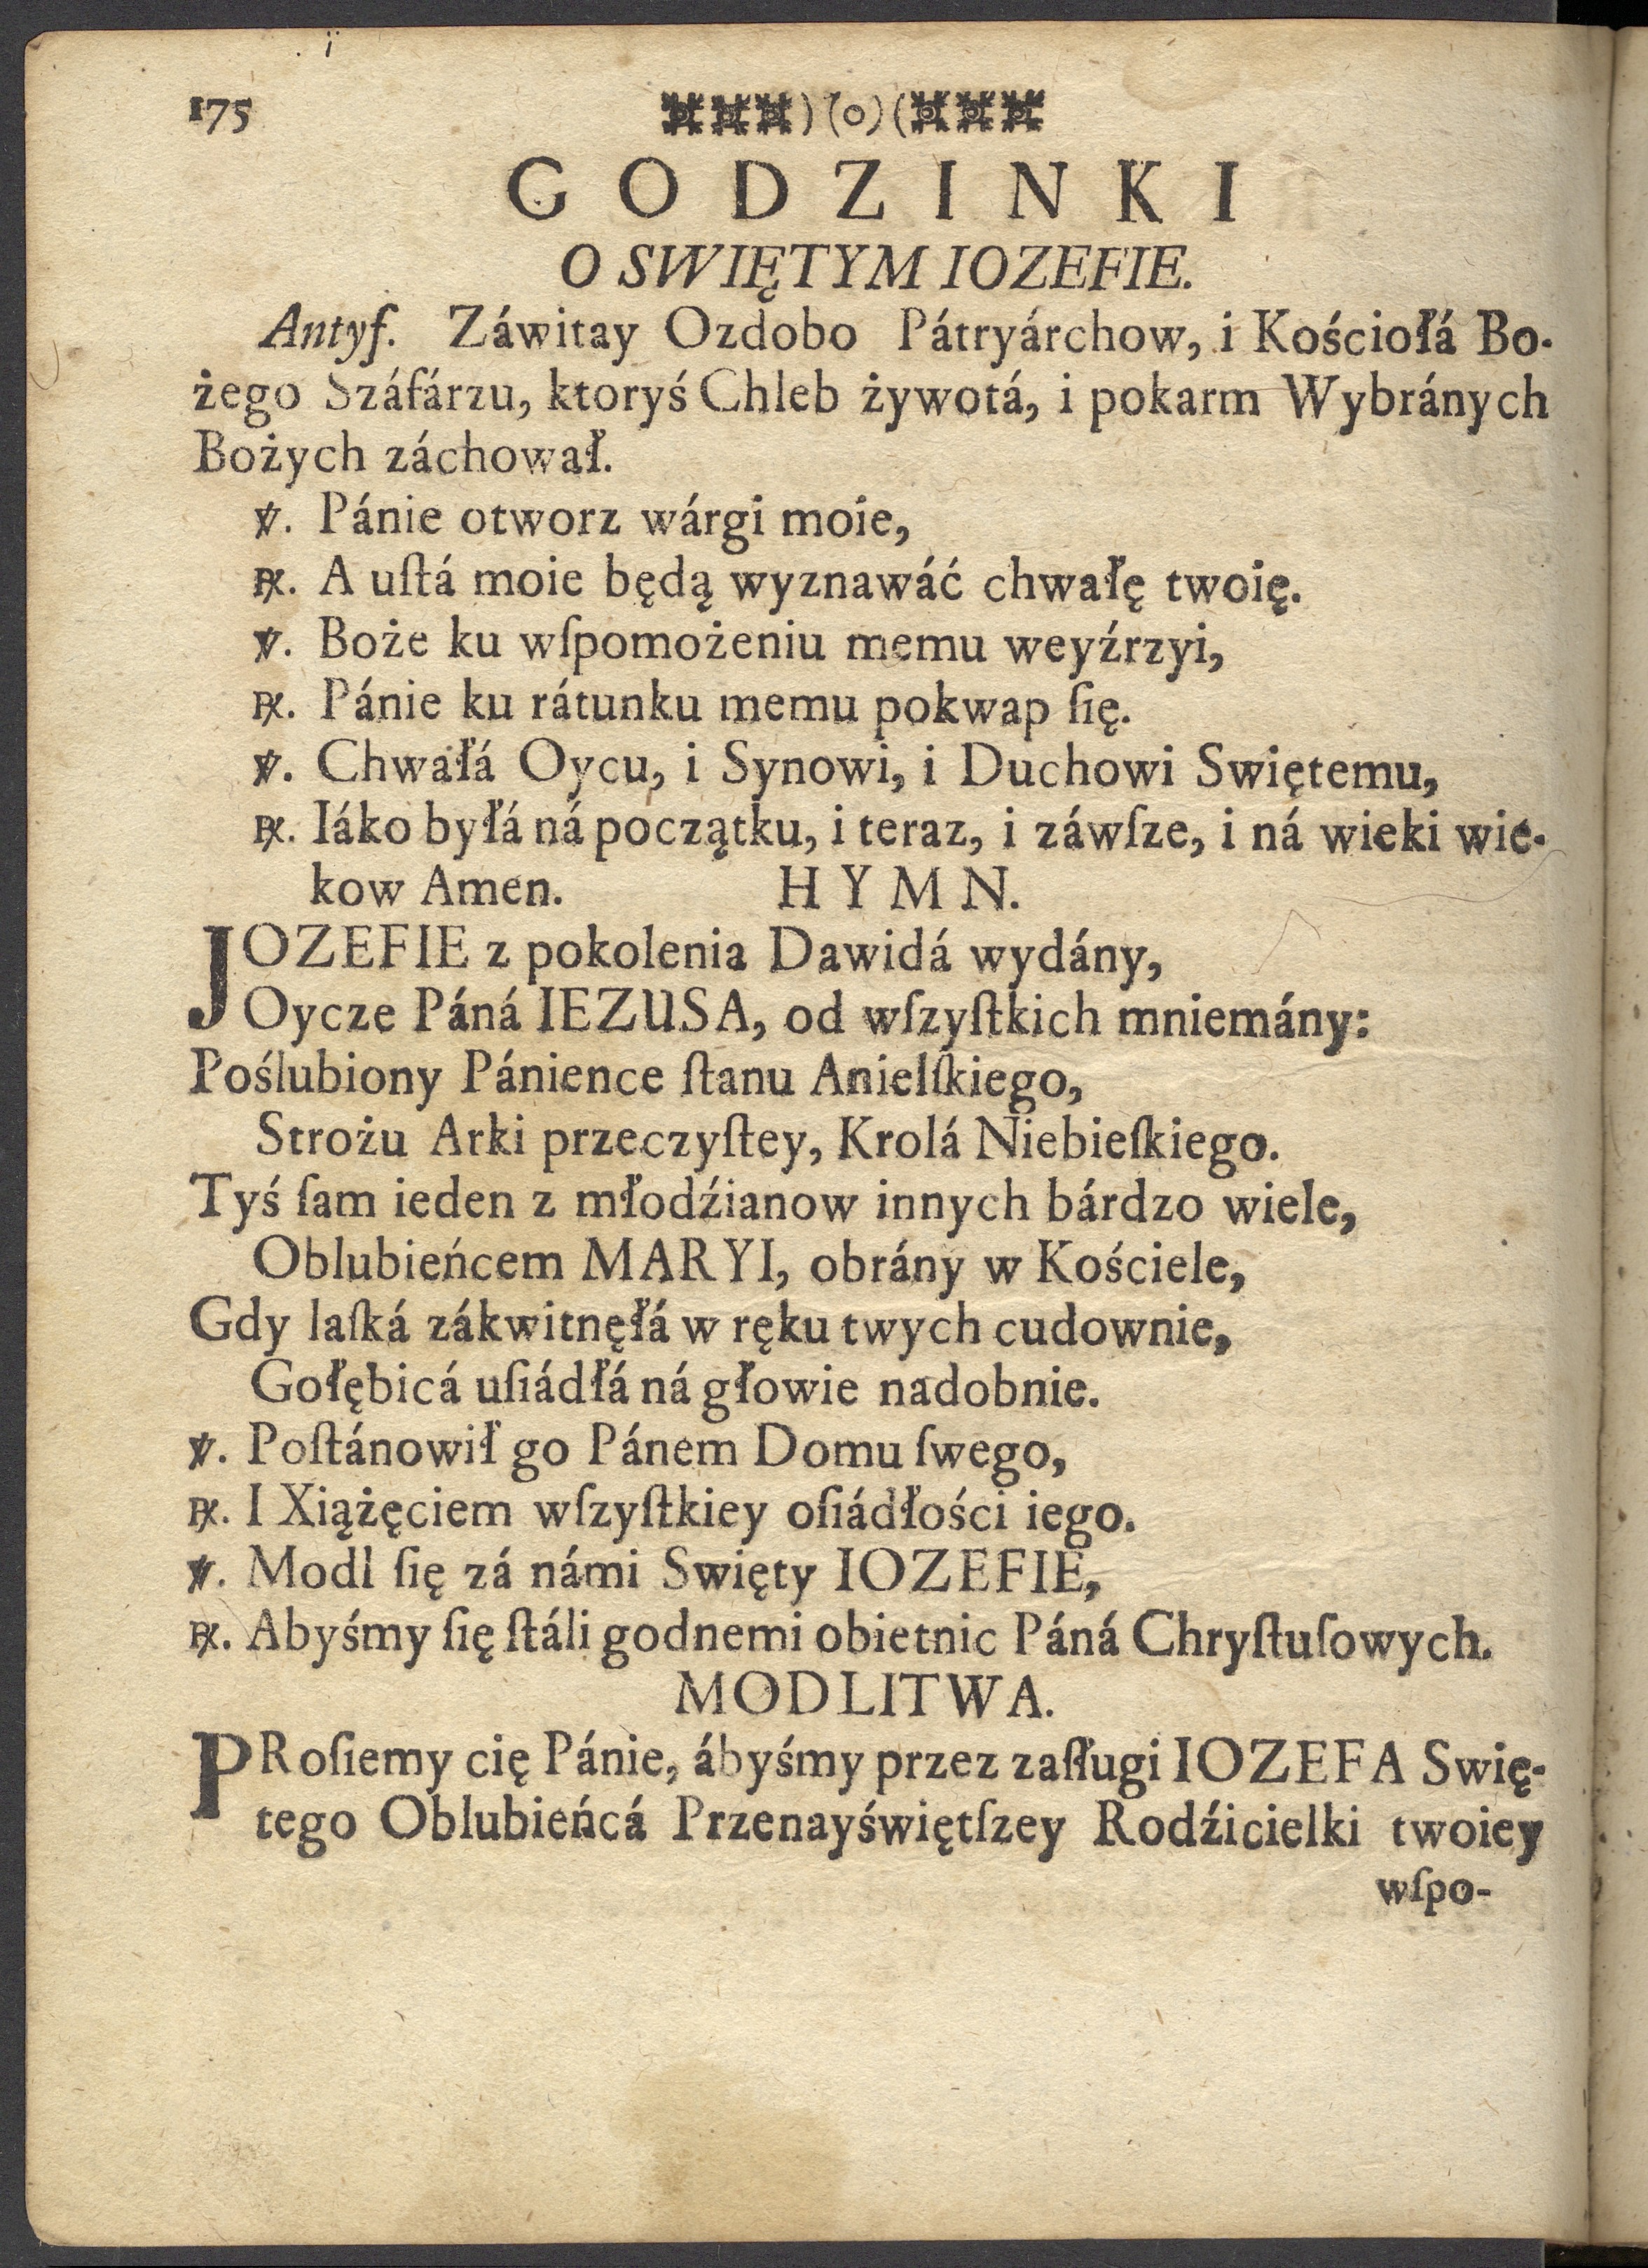 175
)(o)(
GODZINKI
O SWIĘTYM IOZEFIE.
Antyf. Záwitay Ozdobo Pátryárchow, i Kościołá Bo-
żego Száfárzu, ktoryś Chleb żywotá, i pokarm Wybránych
Bożych záchował.
℣. Pánie otworz wárgi moie,
℟. A uſtá moie będą wyznawáć chwałę twoię.
℣. Boże ku wſpomożeniu memu weyźrzyi,
℟. Pánie ku rátunku memu pokwap ſię.
℣. Chwałá Oycu, i Synowi, i Duchowi Swiętemu,
℟. Iáko byłá ná początku, i teraz, i záwſze, i ná wieki wie-
kow Amen. HYMN.
JOZEFIE z pokolenia Dawidá wydány,
Oycze Páná IEZUSA, od wſzyſtkich mniemány:
Poślubiony Pánience ſtanu Anielſkiego,
Strożu Arki przeczyſtey, Krolá Niebieſkiego.
Tyś ſam ieden z młodźianow innych bárdzo wiele,
Oblubieńcem MARYI, obrány w Kościele,
Gdy laſká zákwitnęłá w ręku twych cudownie,
Gołębicá uſiádłá ná głowie nadobnie.
℣. Poſtánowił go Pánem Domu ſwego,
℟. I Xiążęciem wſzyſtkiey oſiádłości iego.
℣. Modl ſię zá námi Swięty IOZEFIE,
℟. Abyśmy ſię ſtáli godnemi obietnic Páná Chryſtuſowych.
MODLITWA.
PRoſiemy cię Pánie, ábyśmy przez zaſługi IOZEFA Swię-
tego Oblubieńcá Przenayświętſzey Rodźicielki twoiey
wſpo-